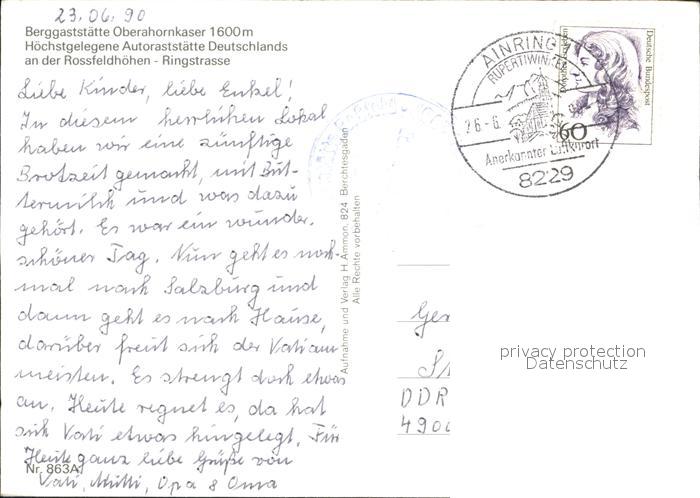 23.06.90
Berggaststätte Oberahornkaser 1600 m
Höchstgelegene Autoraststätte Deutschlands
an der Rossfeldhöhen - Ringstrasse
Liebe Kinder, liebe Enkel!
In diesem herrlichen Lokal
haben wir eine zünftige
Brotzeit gemacht, mit But-
termilch und was dazu
gehört. Es war ein wunder-
schöner Tag. Nun geht es noch-
mal nach Salzburg und
dann geht es nach Hause,
darüber freut sich der Vati am
meisten. Es strengt doch etwas
an. Heute regnet es, da hat
sich Vati etwas hingelegt. Für
Heute ganz liebe Grüße von
Vati, Mutti, Opa & Oma
Nr. 863A
Aufnahme und Verlag H. Ammon, 824 Berchtesgaden
Alle Rechte vorbehalten
AINRING
RUPERTIWINKEL
26.-6.
Anerkannter Luftkurort
8229
60
Deutsche Bundespost
Ger
St
DDR
4900
privacy protection
Datenschutz